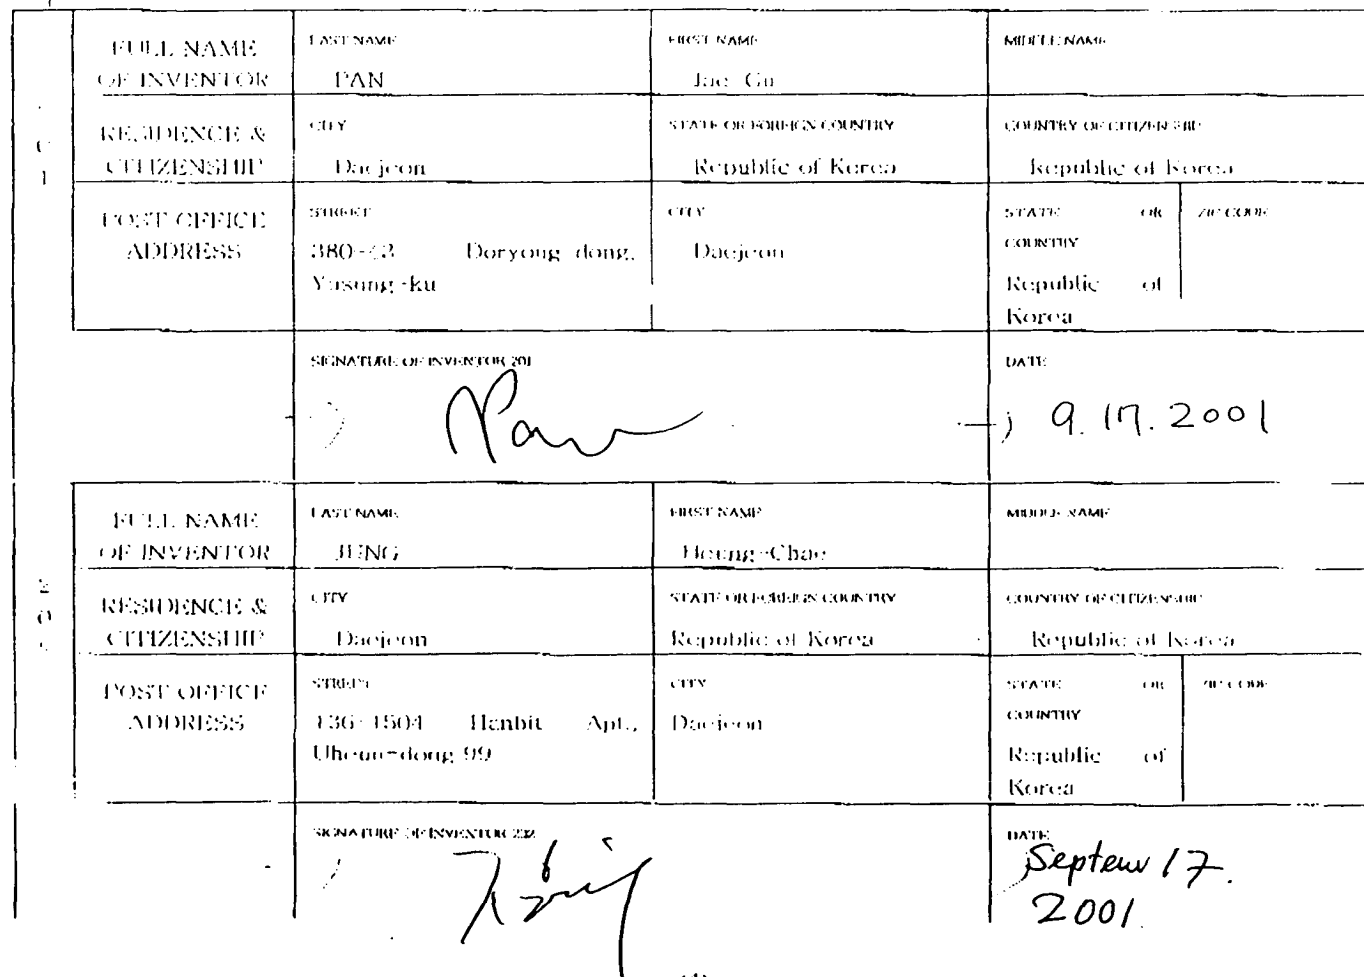 FULL NAME OF INVENTOR
LAST NAME
PAN
FIRST NAME
Jae Gu
MIDDLE NAME
RESIDENCE & CITIZENSHIP
CITY
Daejeon
STATE OR FOREIGN COUNTRY
Republic of Korea
COUNTRY OF CITIZENSHIP
Republic of Korea
POST OFFICE ADDRESS
STREET
Doryong dong,
Yusung-ku
CITY
Daejeon
STATE OR
COUNTRY
Republic of
Korea
ZIP CODE
SIGNATURE OF INVENTOR 201
Pan
DATE
9.17.2001
FULL NAME OF INVENTOR
LAST NAME
JUNG
FIRST NAME
Heung-Chae
MIDDLE NAME
RESIDENCE & CITIZENSHIP
CITY
Daejeon
STATE OR FOREIGN COUNTRY
Republic of Korea
COUNTRY OF CITIZENSHIP
Republic of Korea
POST OFFICE ADDRESS
STREET
Hanbit Apt.,
99
CITY
Daejeon
STATE OR
COUNTRY
Republic of
Korea
ZIP CODE
SIGNATURE OF INVENTOR
DATE
17.
2001.